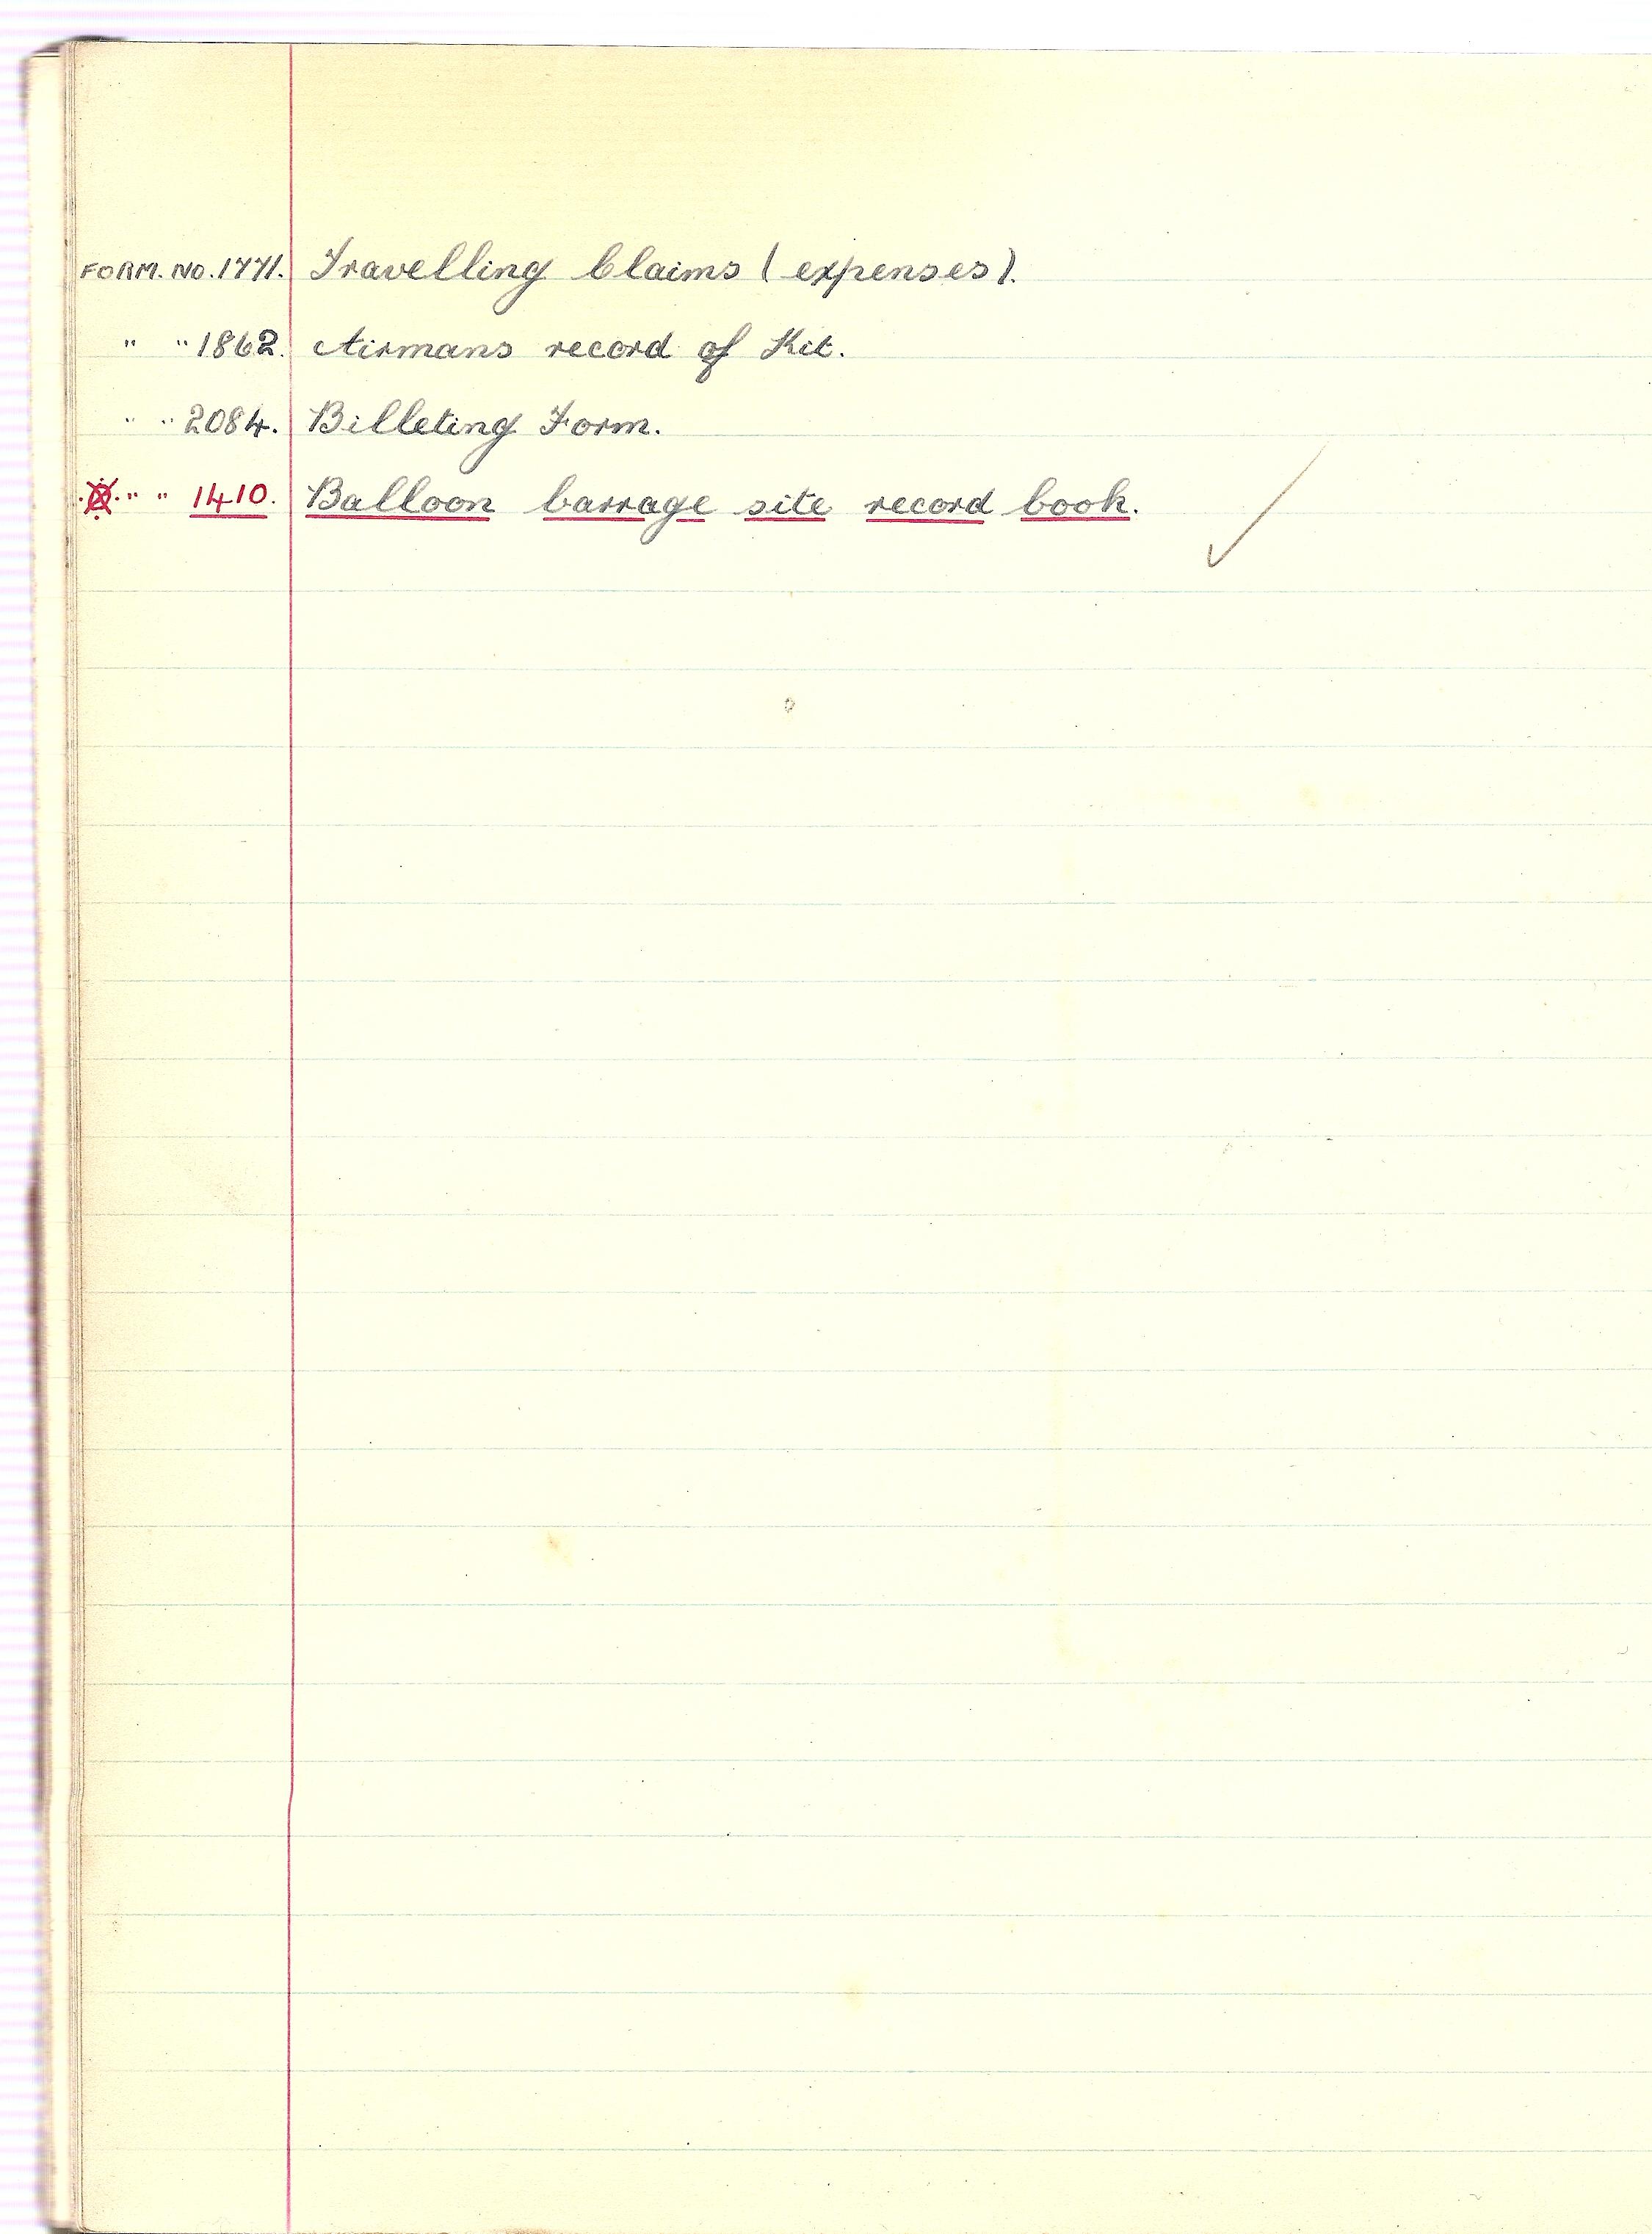 FORM. NO. 1771. Travelling Claims (expenses).
" " 1862. Airmans record of Kit.
" " 2084. Billeting Form.
" " 1410. Balloon barrage site record book.